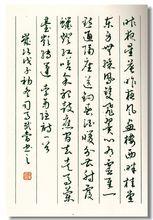 昨夜星辰昨夜風畫樓西畔桂堂
東身無彩鳳雙飛翼心有靈犀一
點通隔座送鉤春酒暖分曹射覆
蠟燈紅嗟余聽鼓應官去走馬蘭
臺類轉蓬 李商隱詩一首
歲次戊子初冬司馬武當書